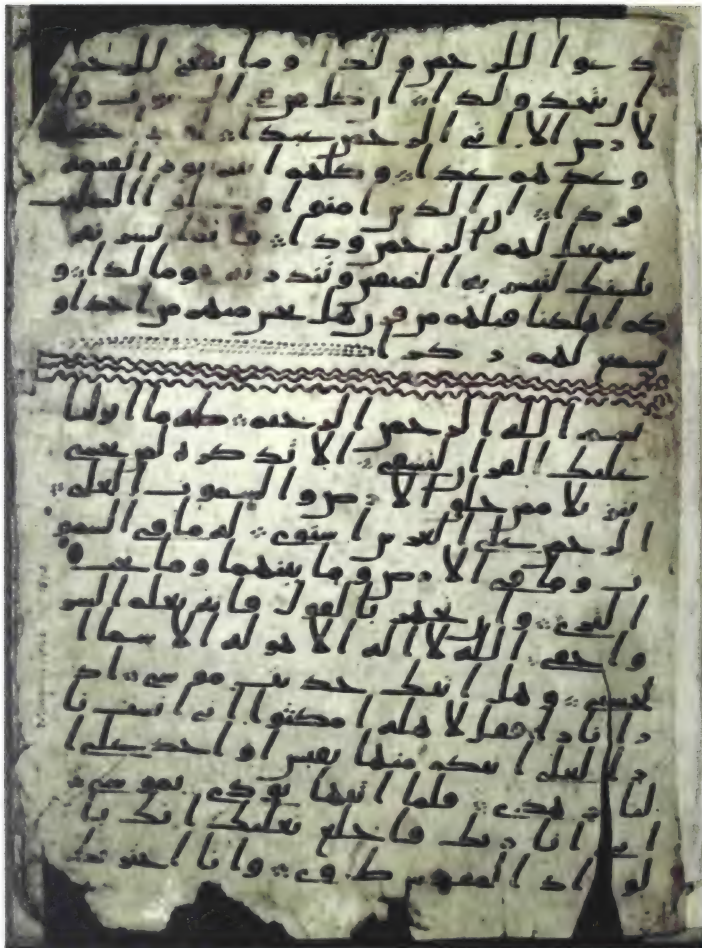 دعوا للرحمن ولدا وما ينبغي للرحمن
ان يتخذ ولدا ان كل من في السموت وا
لارض الا اتي الرحمن عبدا لقد احصهم
وعدهم عدا وكلهم اتيه يوم القيمة
فردا ان الذين امنوا وعملوا الصلحت
سيجعل لهم الرحمن ودا فانما يسرنه
بلسنك لتبشر به المتقين وتنذر به قوما لدا و
كم اهلكنا قبلهم من قرن هل تحس منهم من احد او
تسمع لهم ركزا
بسم الله الرحمن الرحيم طه ما انزلنا
عليك القران لتشقى الا تذكرة لمن يخشى
تنزيلا ممن خلق الارض والسموت العلى
الرحمن على العرش استوى له ما في السمو
ت وما في الارض وما بينهما وما تحت
الثرى وان تجهر بالقول فانه يعلم السر
واخفى الله لا اله الا هو له الاسما ا
لحسنى وهل اتيك حديث موسى اذ
را نارا فقال لاهله امكثوا اني انست نا
را لعلي اتيكم منها بقبس او اجد على ا
لنار هدى فلما اتيها نودي يموسى
اني انا ربك فاخلع نعليك انك با
لواد المقدس طوى وانا اخترتك